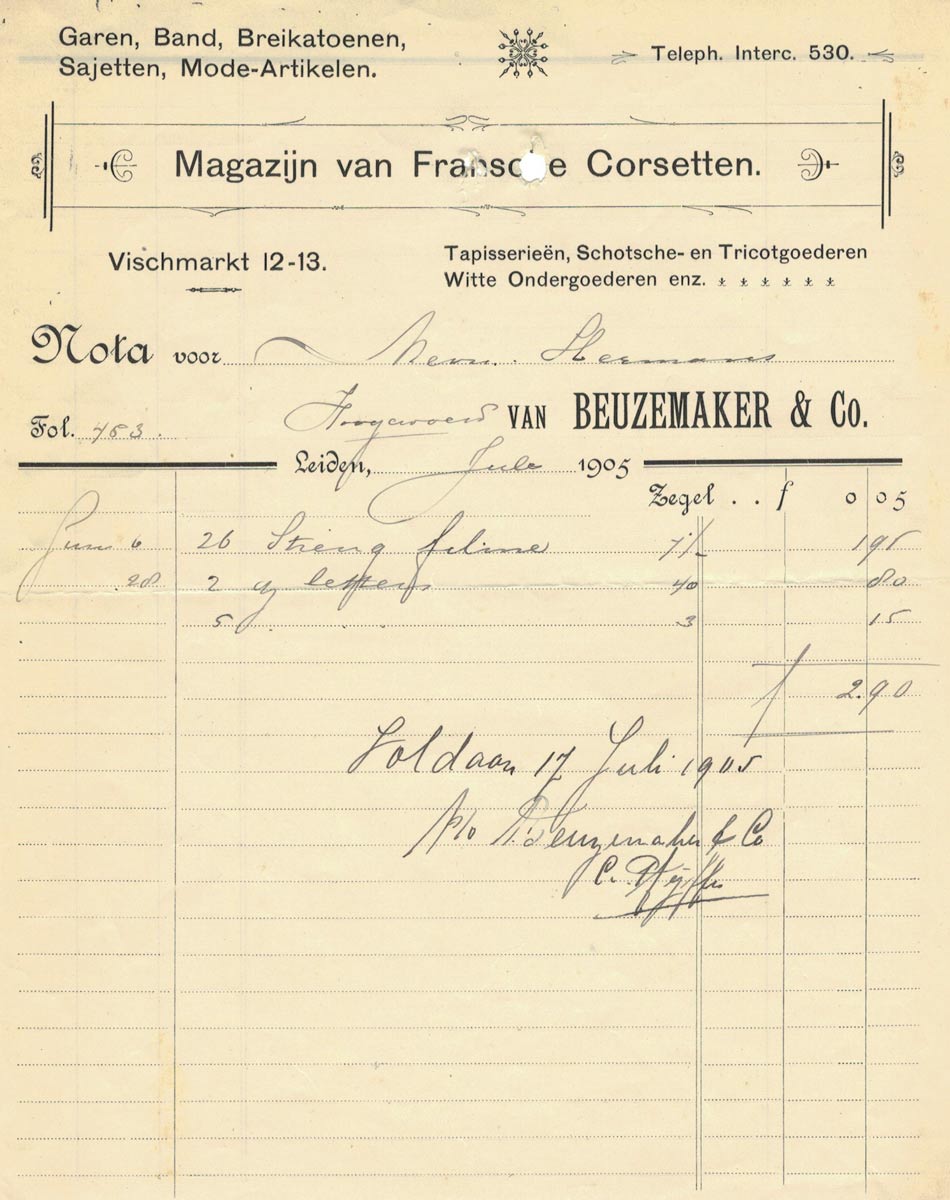 Garen, Band, Breikatoenen,
Sajetten, Mode-Artikelen.
Teleph. Interc. 530.
Magazijn van Fransche Corsetten.
Vischmarkt 12-13.
Tapisserieën, Schotsche- en Tricotgoederen
Witte Ondergoederen enz.
Nota voor Mevr. Hermans
Hoogewoerd VAN BEUZEMAKER & Co.
Fol. 453.
Leiden, Juli 1905
Zegel . . f 0 05
Juni 6 26 Streng 7½ 195
28 2 letters 40 80
5 3 15
f 2.90
Voldaan 17 Juli 1905
p/o v. Beuzemaker & Co